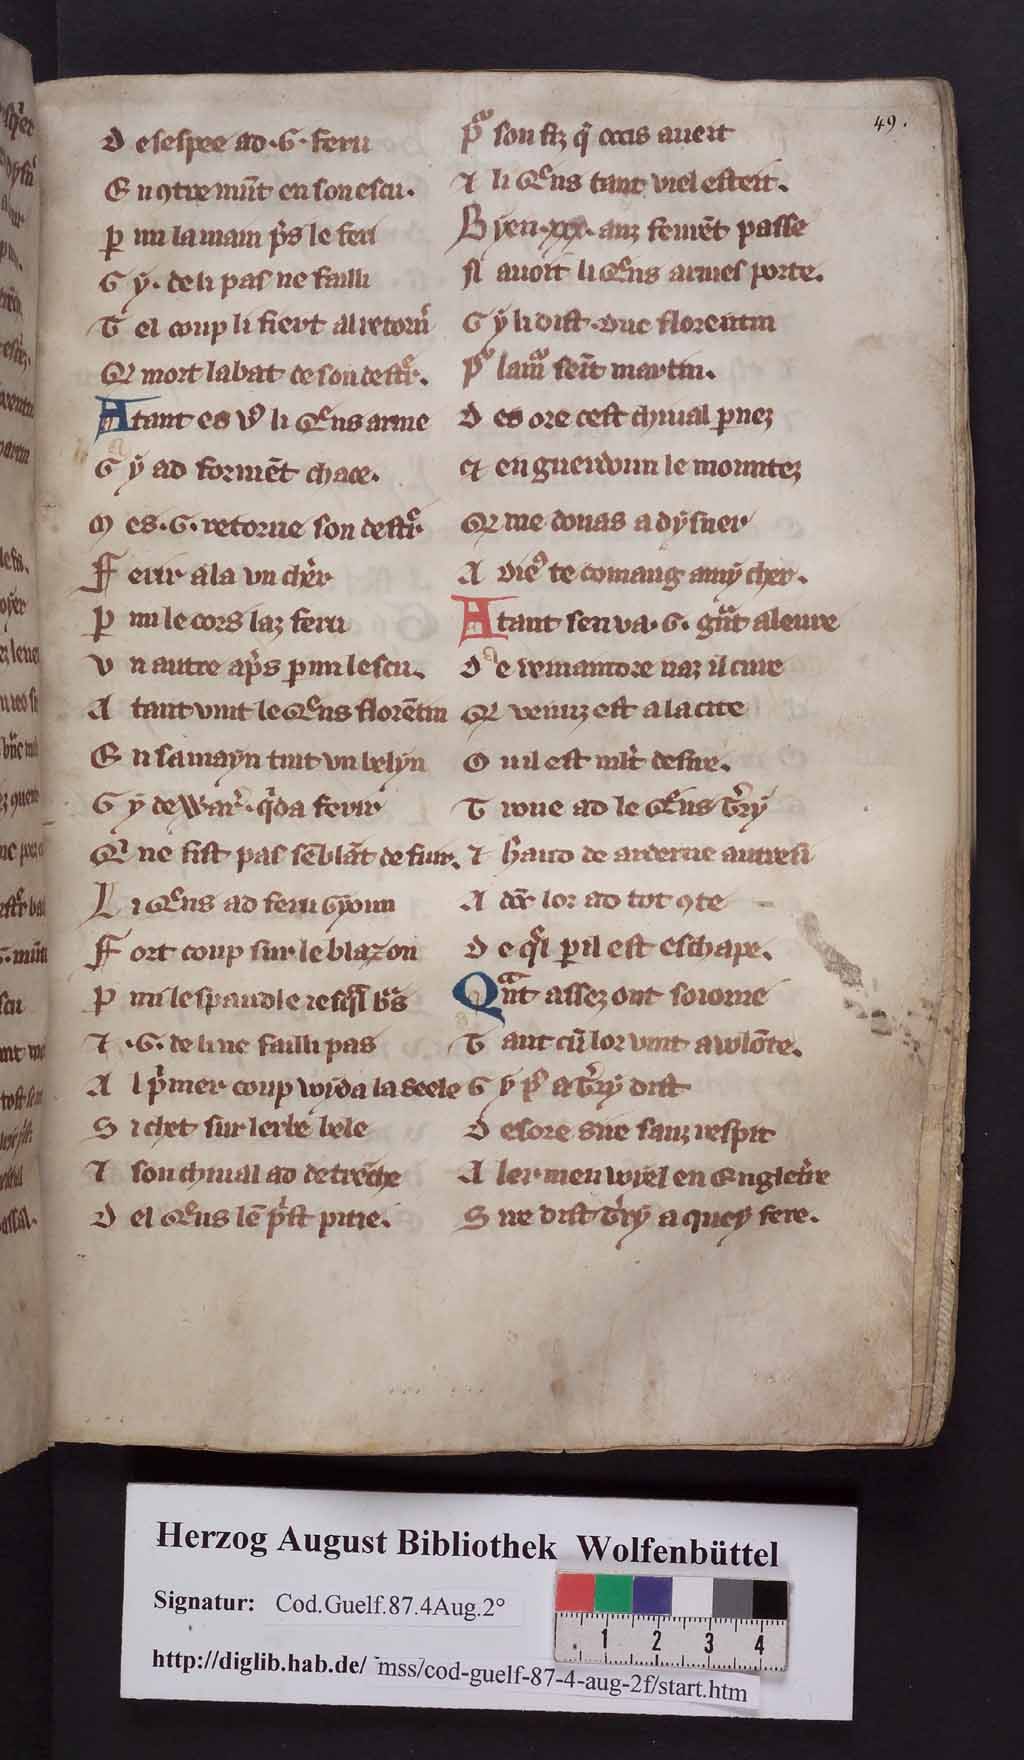 49.
D esespee ad .G. feru
E n ꝯtre mūt en son escu.
P mi la main p̄s le feri
G ẏ. de li pas ne failli
T el coup li fiert al retorn̄
Q̄ mort labat de son destr̄.
A tant es vo li Quens arme
G ẏ ad formēt chace.
M es .G. retorne son destr̄
FF erir ala vn chr̄
P mi le cors laz feru
V n autre ap̄s pmi lescu.
A tant vint le Quens florētin
E n sa mayn tint vn belyn
G ẏ de War̄. qͥda ferir
Qͥ ne fist pas sēblāt de fuir.
L i Quens ad feru Gyoun
FF ort coup sur le blazon
P mi lespaudle
⁊ .G. de li ne failli pas
A l pͥmer coup voida la seele
S i chet sur lerbe bele
⁊ son chiual ad detrēche
D el Quens lē pͥst pitie.
Pͦ son fiz qͥ occis aueit
⁊ li Quens tant viel esteit.
B yen .xxx. anz feurēt passe
N auoit li Quens armes porte.
G ẏ li dist. duc florentin
Pͦ lamͦ seīt martin.
D es ore cest chiual pnez
⁊ en guerdoun le mountez
Q̄ me donas a dysner
A dieͦ te comaug amy cher.
A tant sen va .G. gͣnt aleure
D e remaindre naz il cure
Q̄ venuz est a la cite
O u il est mlt̄ desire.
T roue ad le Quens Tͥry
⁊ haud de arderne autresi
A dōc lor ad tot ꝯte
D e qͥl pil est eschape.
Q ͣnt assez ont soiorne
T ant cū lor vint a volōte.
G ẏ pͦ a Tͥry dist
D esore sue sanz respit
A ler men voiel en Engletͥre
S ire dist Tͥry a quey fere.
Herzog August Bibliothek Wolfenbüttel
Signatur: Cod.Guelf.87.4Aug.2°
http://diglib.hab.de/ mss/cod-guelf-87-4-aug-2f/start.htm
1 2 3 4